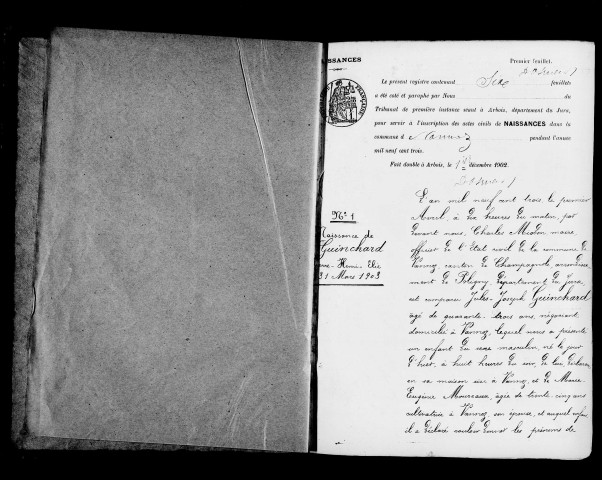 NAISSANCES
Premier feuillet.
Le présent registre contenant Six feuillets
a été coté et paraphé par Nous du
Tribunal de première instance séant à Arbois, département du Jura,
pour servir à l'inscription des actes civils de NAISSANCES dans la
commune d pendant l'année
mil neuf cent trois.
Fait double à Arbois, le décembre 1902.
N° 1
Naissance de
Guinchard
Henri-Elie
31 Mars 1903
L'an mil neuf cent trois, le premier
Avril, à dix heures du matin, par
devant nous, Charles Midon maire,
officier de l'Etat civil de la commune de
Vannoz, canton de Champagnole, arrondisse
ment de Poligny, département du Jura,
est comparu Jules-Joseph Guinchard
âgé de quarante-trois ans, négociant,
domicilié à Vannoz, lequel nous a présenté
un enfant du sexe masculin, né le jour
d'hier, à huit heures du soir, de lui, déclarant,
en sa maison sise à Vannoz, et de Marie
Eugénie Moureaux, âgée de trente cinq ans
cultivatrice à Vannoz, son épouse, et auquel enfant
il a déclaré vouloir donner les prénoms de